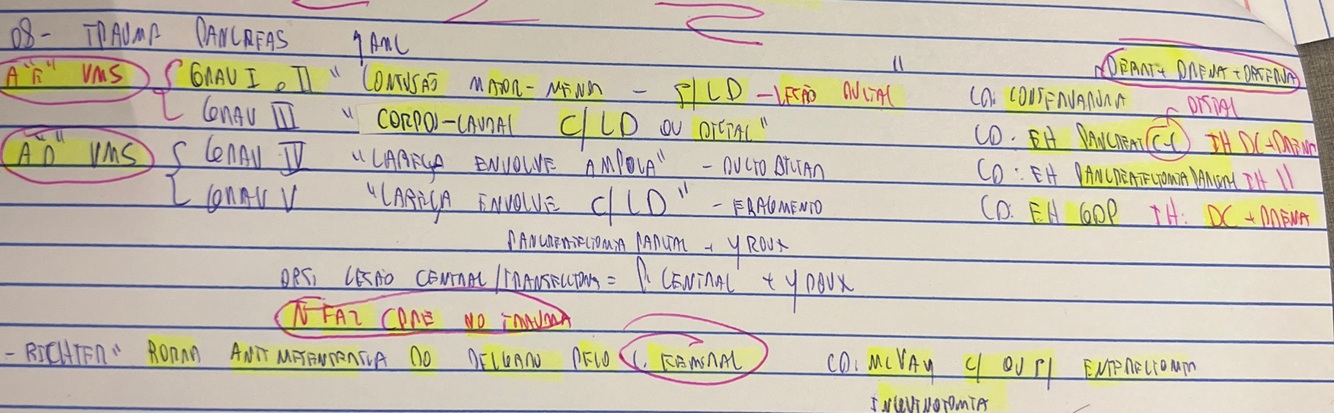 08- TRAUMA PANCREAS ↑ AML
DEBRIDA + DRENA + OBSERVA
A "E" VMS { GRAU I e II " CONTUSÃO MAIOR-MENOR - S/ LD - LESÃO DUCTAL " CD: CONSERVADORA DISTAL
GRAU III " CORPO-CAUDAL C/ LD OU DISTAL" CD: EH PANCREAT C-C IH DC+DRENA
A "D" VMS { GRAU IV "CABEÇA ENVOLVE AMPOLA" - DUCTO BILIAR CD: EH PANCREATECTOMIA PARCIAL IH 11
GRAU V "CABEÇA ENVOLVE C/ LD" - FRAGMENTO CD: EH GDP IH: DC + DRENA
PANCREATECTOMIA PARCIAL + Y ROUX
OBS: LESÃO CENTRAL / = P CENTRAL + Y ROUX
Ñ FAZ CPRE NO TRAUMA
- RICHTER" BORDA ANTIMESENTERICA DO DELGADO PELO C. FEMORAL CD: MCVAY C/ OU S/ ENTERECTOMIA
INGUINOTOMIA